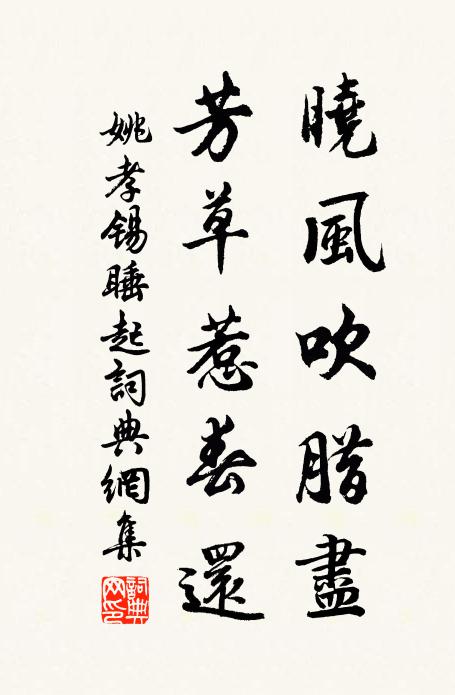 曉風吹腊盡
芳草惹春還
姚孝錫睡起詞典網集
詞典網印